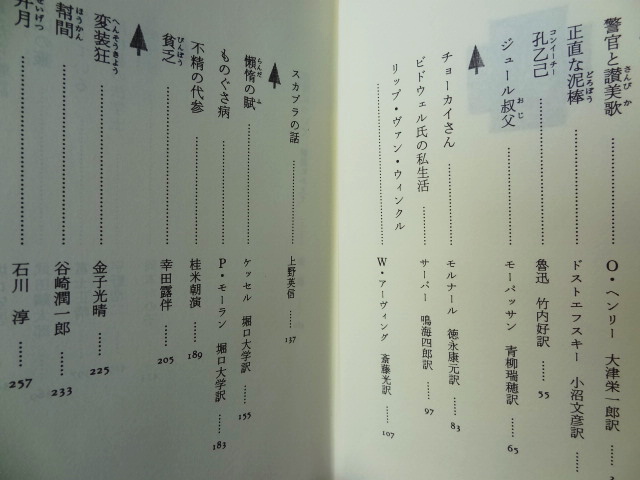 警官と讃美歌 さんびか …… O・ヘンリー 大津栄一郎訳 ……
正直な泥棒 どろぼう …… ドストエフスキー 小沼文彦訳 ……
孔乙己 コンイーチー …… 魯迅 竹内好訳 …… 55
ジュール叔父 おじ …… モーパッサン 青柳瑞穂訳 …… 65
チョーカイさん …… モルナール 徳永康元訳 …… 83
ビドウェル氏の私生活 …… サーバー 鳴海四郎訳 …… 97
リップ・ヴァン・ウィンクル …… W・アーヴィング 斎藤光訳 …… 107
スカブラの話 …… 上野英信 …… 137
懶惰の賦 らんだ ふ …… ケッセル 堀口大学訳 …… 155
ものぐさ病 …… P・モーラン 堀口大学訳 …… 183
不精の代参 …… 桂米朝演 …… 189
貧乏 びんぼう …… 幸田露伴 …… 205
変装狂 へんそうきょう …… 金子光晴 …… 225
幇間 ほうかん …… 谷崎潤一郎 …… 233
井月 せいげつ …… 石川 淳 …… 257